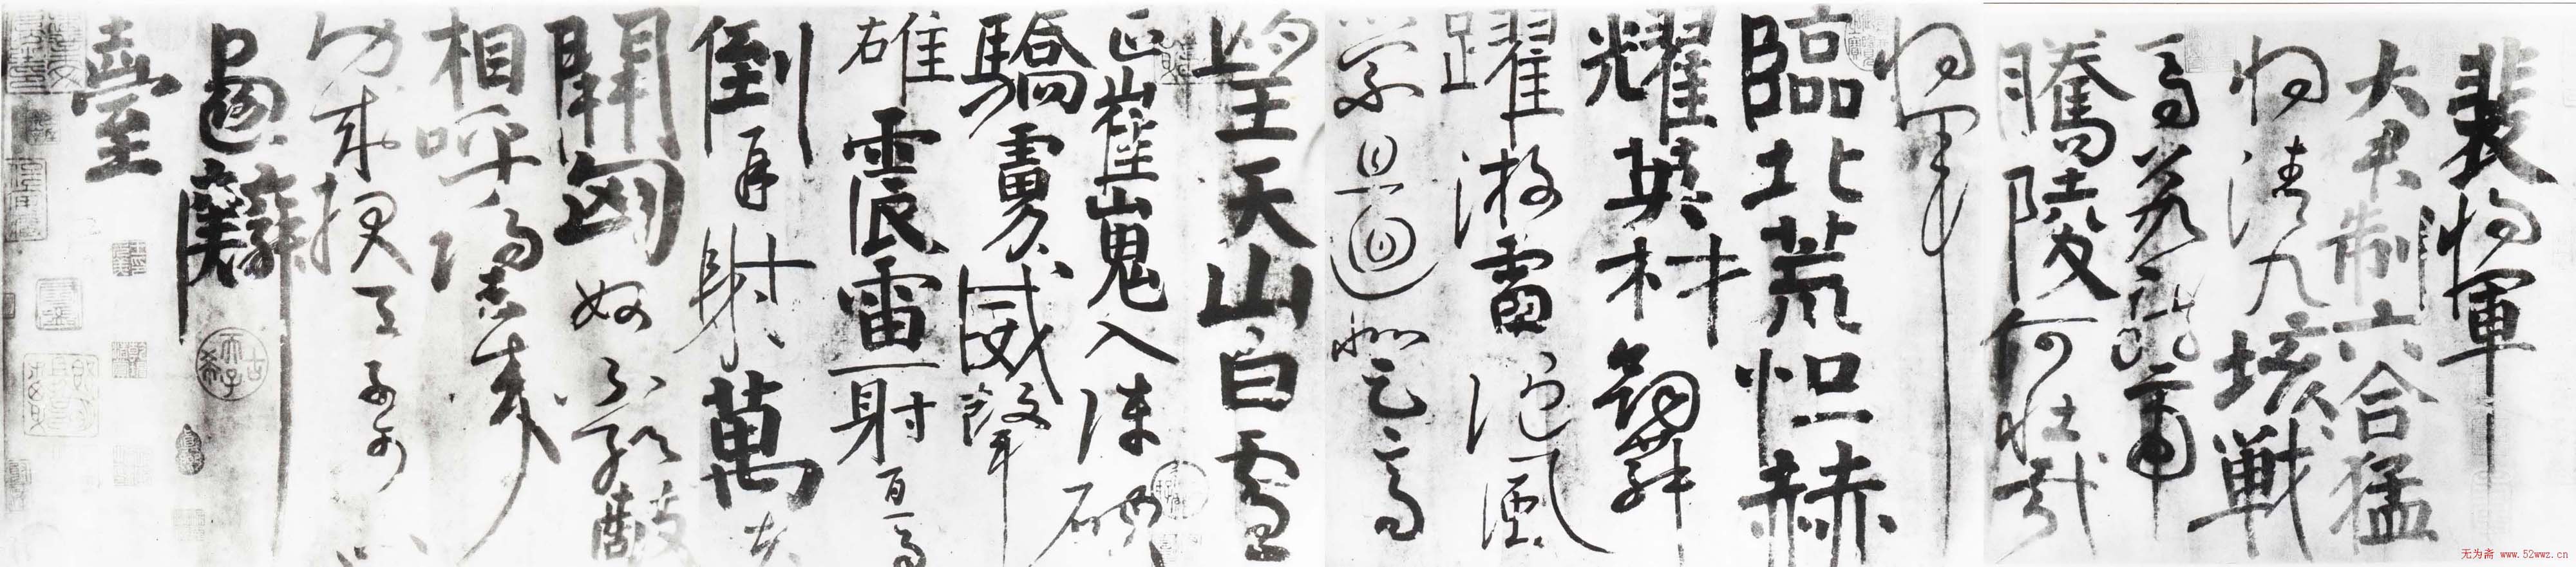 裴將軍
大君制六合猛
將清九垓戰
馬若龍虎
騰陵何壯哉
將軍
臨北荒恒赫
耀英材劒舞
躍游電隨風
縈且迴登高
望天山白雪
正崔嵬入陣破
驕虜威聲
雄震雷一射百馬
倒再射萬夫
開匈奴不敢敵
相呼歸去來
功成報天子可以
畫麟
臺
古希天子
无为斋 www.52wwz.cn